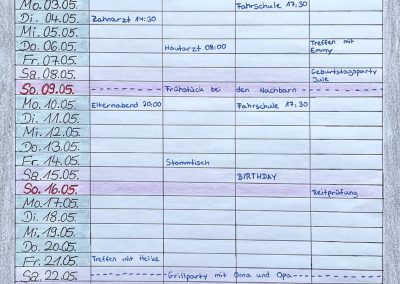 Mo. 03.05. Fahrschule 17:30
Di. 04.05. Zahnarzt 14:30
Mi. 05.05.
Do. 06.05. Hautarzt 08:00 Treffen mit Emmy
Fr. 07.05.
Sa. 08.05. Geburtstagsparty Jule
So. 09.05. Frühstück bei den Nachbarn
Mo. 10.05. Elternabend 20:00 Fahrschule 17:30
Di. 11.05.
Mi. 12.05.
Do. 13.05.
Fr. 14.05. Stammtisch
Sa. 15.05. BIRTHDAY
So. 16.05. Reitprüfung
Mo. 17.05.
Di. 18.05.
Mi. 19.05.
Do. 20.05.
Fr. 21.05. Treffen mit Heike
Sa. 22.05. Grillparty mit Oma und Opa